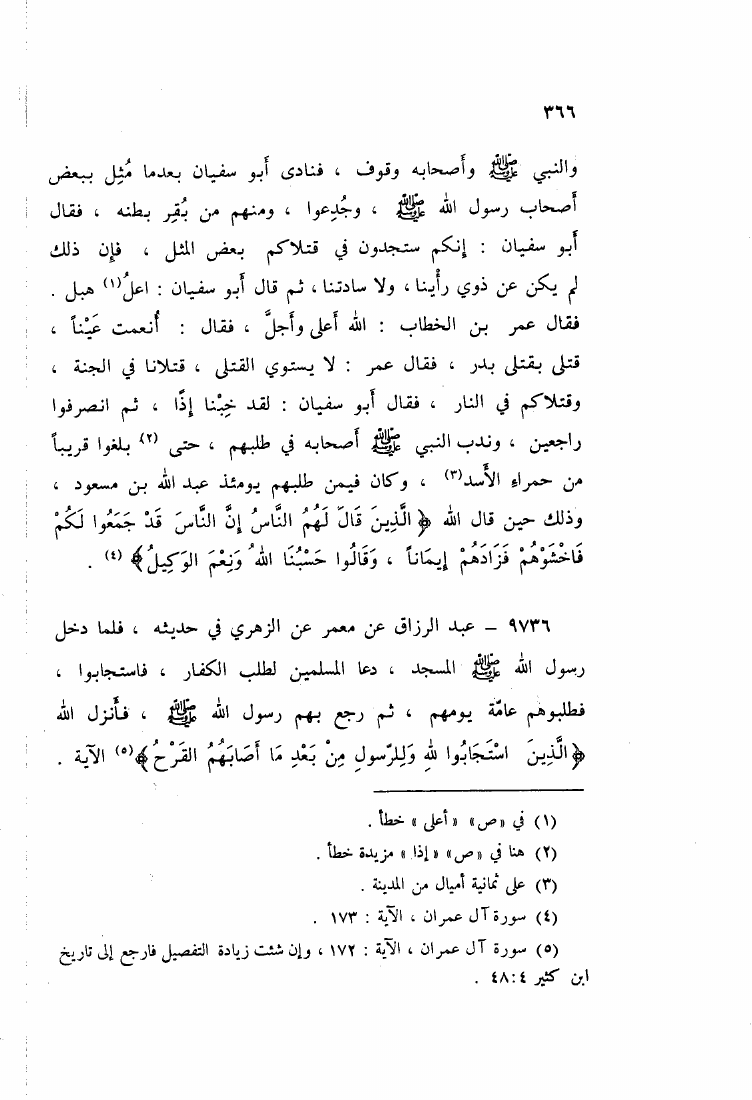 ٣٦٦
والنبي ﷺ وأصحابه وقوف ، فنادى أبو سفيان بعدما مُثِل ببعض
أصحاب رسول الله ﷺ ، وجُدِعوا ، ومنهم من بُقِر بطنه ، فقال
أبو سفيان : إنكم ستجدون في قتلاكم بعض المثل ، فإن ذلك
لم يكن عن ذوي رأينا ، ولا سادتنا ، ثم قال أبو سفيان : اعلُ(١) هبل .
فقال عمر بن الخطاب : الله أعلى وأجلَّ ، فقال : أُنعمت عَيْناً ،
قتلى بقتلى بدر ، فقال عمر : لا يستوي القتلى ، قتلانا في الجنة ،
وقتلاكم في النار ، فقال أبو سفيان : لقد خِبْنا إذًا ، ثم انصرفوا
راجعين ، وندب النبي ﷺ أصحابه في طلبهم ، حتى (٢) بلغوا قريباً
من حمراء الأسد(٣) ، وكان فيمن طلبهم يومئذ عبد الله بن مسعود ،
وذلك حين قال الله ﴿ الَّذِينَ قَالَ لَهُمُ النَّاسُ إِنَّ النَّاسَ قَدْ جَمَعُوا لَكُمْ
فَاخْشَوْهُمْ فَزَادَهُمْ إِيمَاناً ، وَقَالُوا حَسْبُنَا اللهُ وَنِعْمَ الوَكِيلُ﴾ (٤) .
٩٧٣٦ – عبد الرزاق عن معمر عن الزهري في حديثه ، فلما دخل
رسول الله ﷺ المسجد ، دعا المسلمين لطلب الكفار ، فاستجابوا ،
فطلبوهم عامّة يومهم ، ثم رجع بهم رسول الله ﷺ ، فأنزل الله
﴿الَّذِينَ اسْتَجَابُوا للهِ وَلِلرّسولِ مِنْ بَعْدِ مَا أَصَابَهُمُ القَرْحُ﴾(٥) الآية .
(١) في «ص» «أعلى» خطأ .
(٢) هنا في «ص» «إذا» مزيدة خطأ .
(٣) على ثمانية أميال من المدينة .
(٤) سورة آل عمران ، الآية : ١٧٣ .
(٥) سورة آل عمران ، الآية : ١٧٢ ، وإن شئت زيادة التفصيل فارجع إلى تاريخ
ابن كثير ٤:٤٨ .